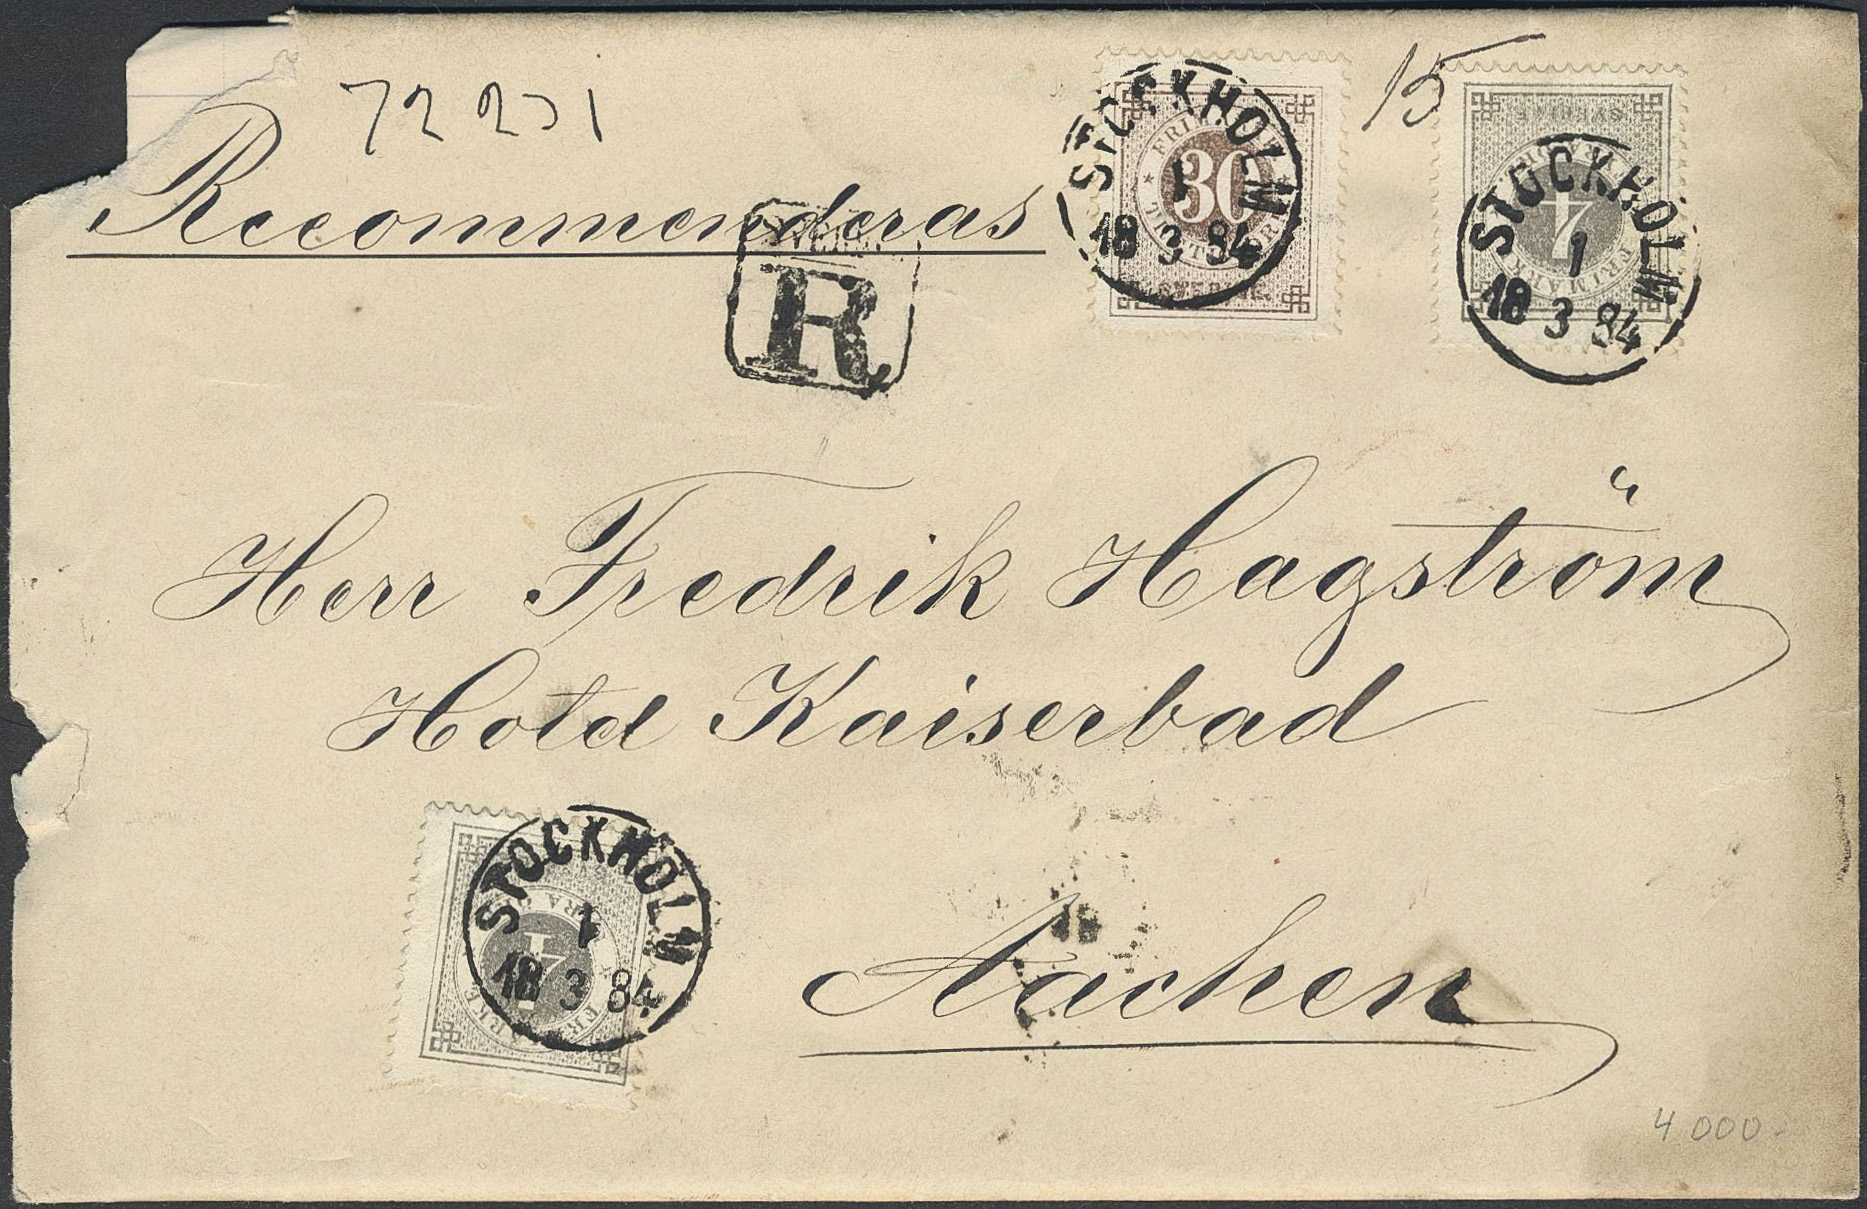 72231
15
Recommenderas
R
STOCKHOLM
1
18 3 84
30
SVERIGE
STOCKHOLM
1
18 3 84
4
SVERIGE
FRIMÄRKE
Herr Fredrik Hagström
Hotel Kaiserbad
STOCKHOLM
1
18 3 84
4
Aachen
4 000 -